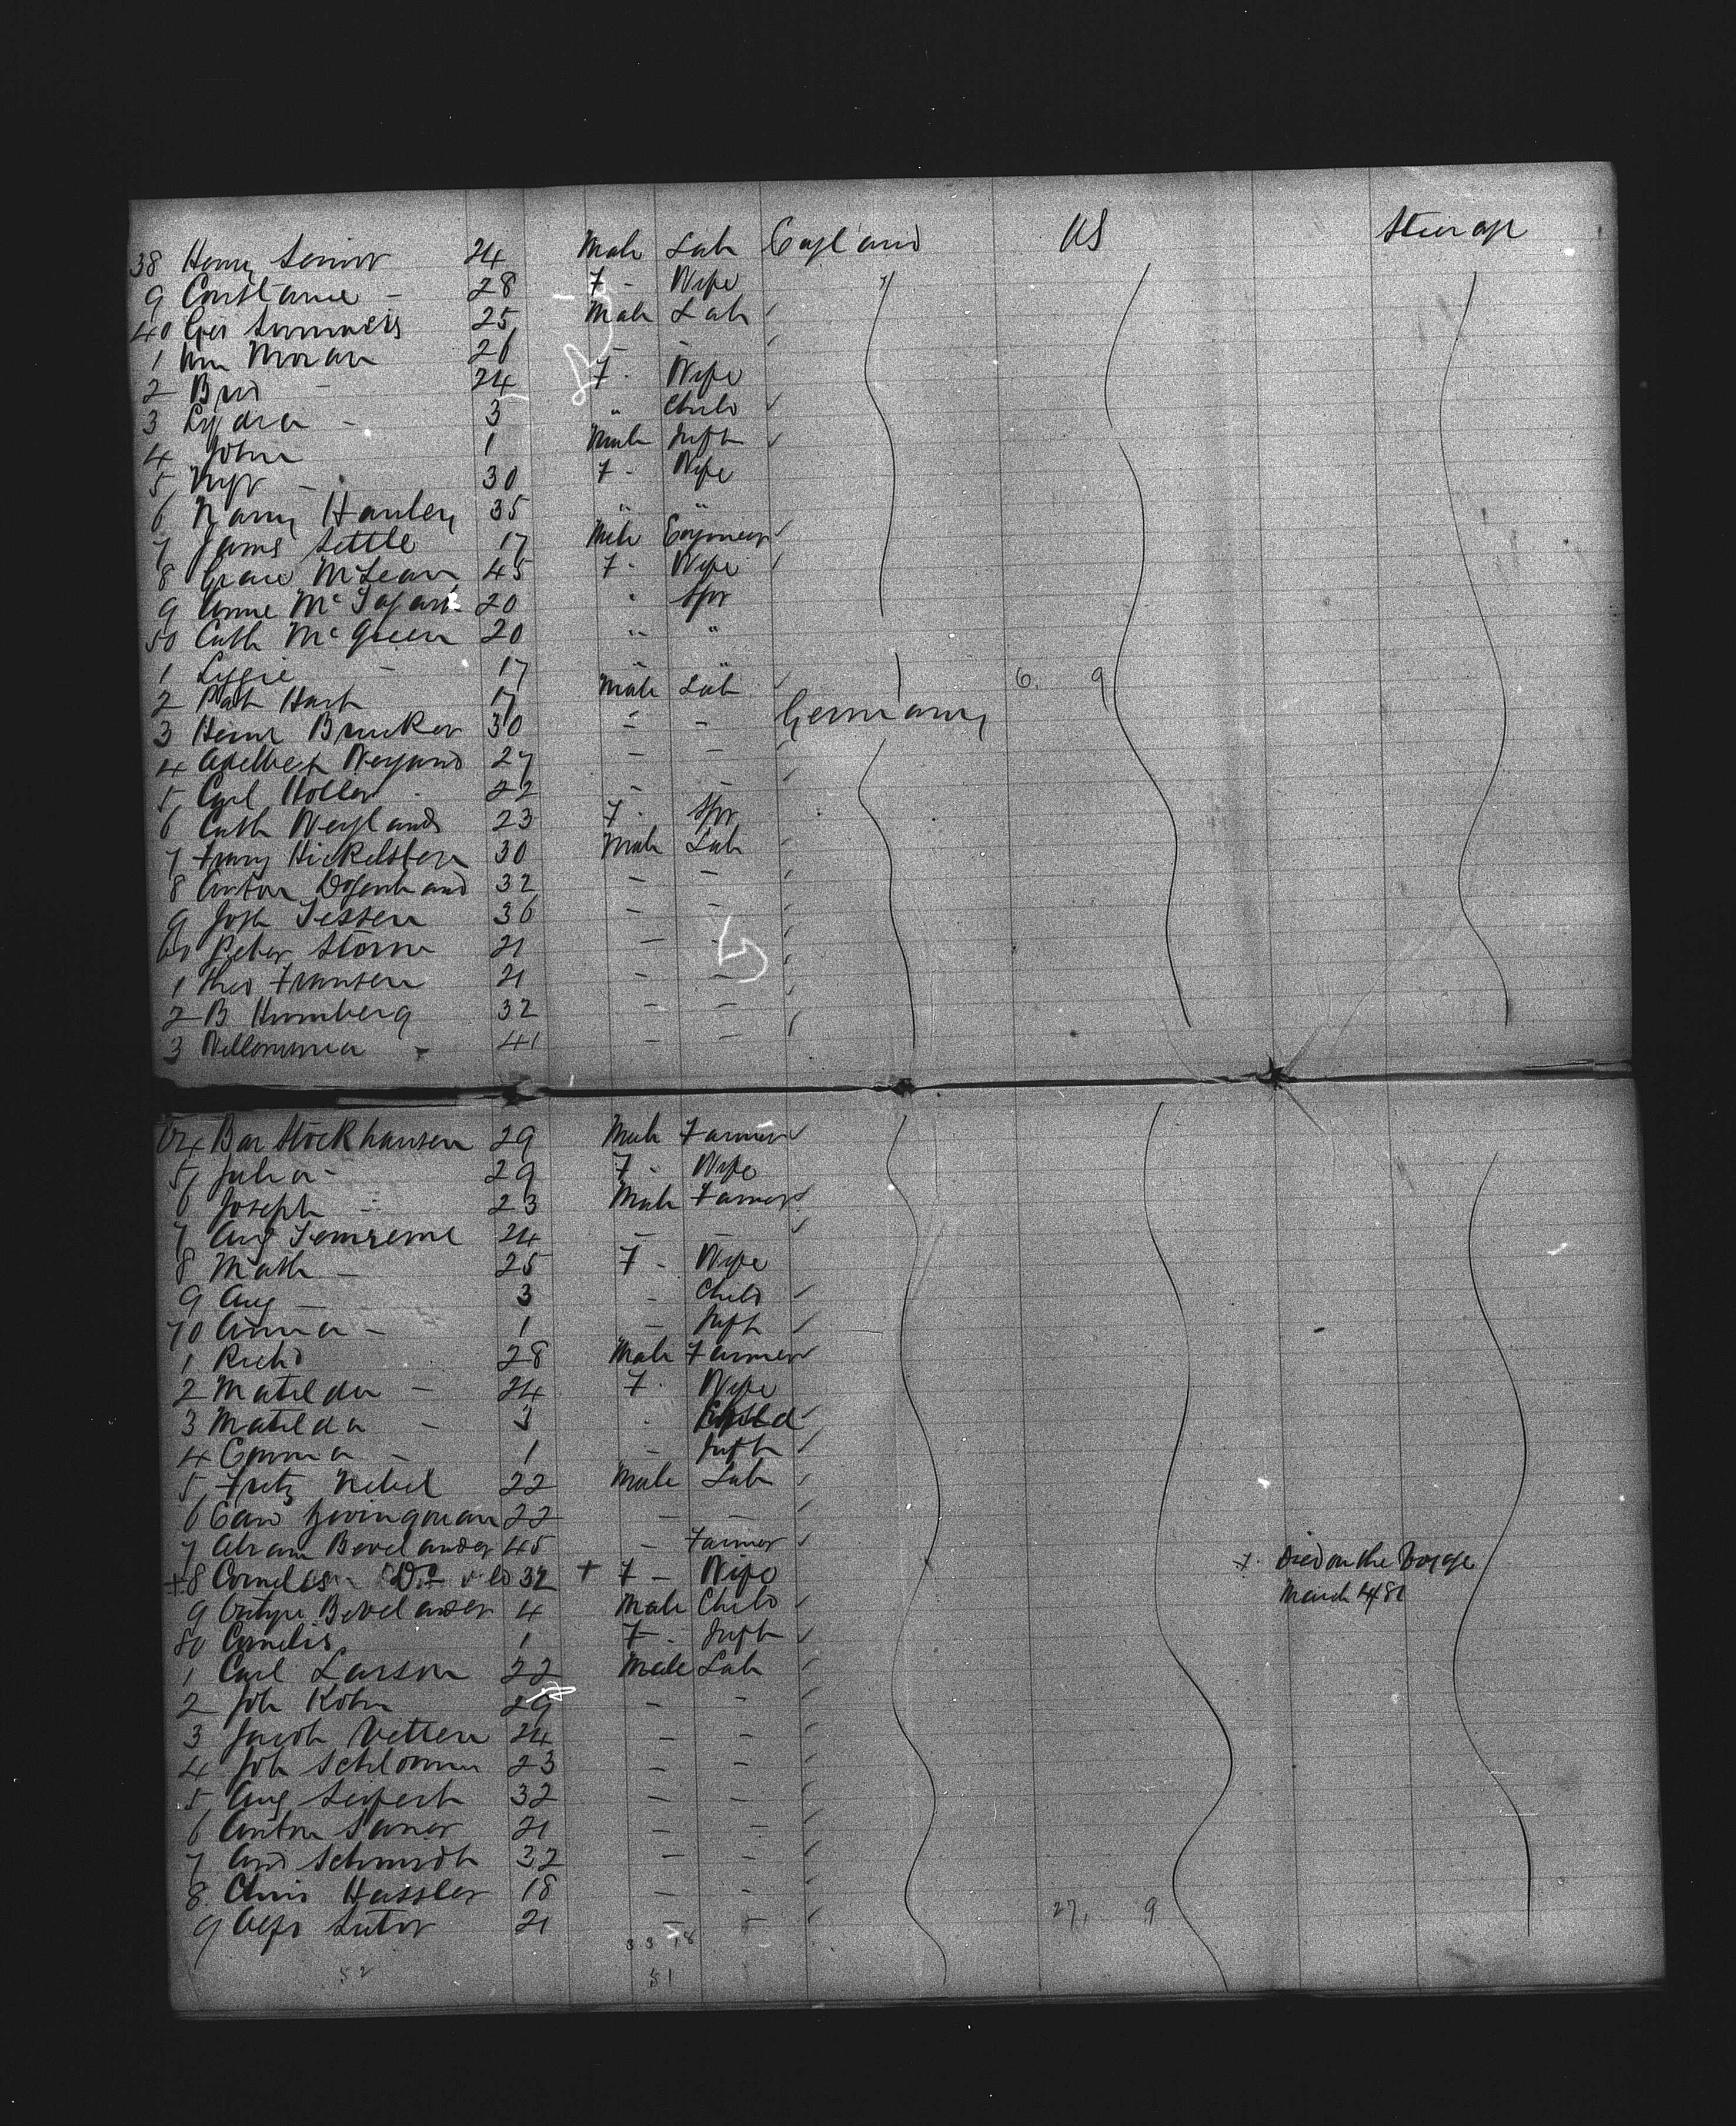 38 Henry Senior 24 Male Lab England US Steerage
9 Constance - 28 F - Wife
40 Geo Summers 25 Male Lab
1 Wm Moran 26 - -
2 - 24 F - Wife
3 Lydia - 3 " Child
4 John 1 Male Inft
5 - 30 F - Wife
6 Hanley 35 " "
7 James Settle 17 Male Engineer
8 Grace McLean 45 F - Wife
9 Annie 20 " Spr
50 Cath McGreen 20 " "
1 Lizzie - 17 " "
2 Path Hart 17 Male Lab 6. 9
3 Brucker 30 - - Germany
4 27 - -
5 Carl Holler 22 - -
6 Cath Weylands 23 F - Spr
7 30 Male Lab
8 Anton 32 - -
9 Josh Tessen 36 - -
60 Peter Storm 21 - -
1 Theo Fransen 21 - -
2 B Humberg 32 - -
3 - 41 - -
64 Bar Stockhausen 29 Male Farmer
5 Julia - 29 F - Wife
6 Joseph - 23 Male Farmer
7 Aug 24 - -
8 Math - 25 F - Wife
9 Aug - 3 - Child
70 Anna - 1 - Inft
1 Richd 28 Male Farmer
2 Matilda - 24 F - Wife
3 Matilda - 3 - Child
4 Emma - 1 - Inft
5 Fritz Nebel 22 Male Lab
6 22 - -
7 Abram Bevelander 45 - Farmer
+8 Cornelis Do 32 + F - Wife + Died on the Voyage
March 4/81
9 Bevelander 4 Male Child
80 Cornelis 1 F - Inft
1 Carl Larson 22 Male Lab
2 Joh Kohn 29 - -
3 Jacob Vetter 24 - -
4 Joh 23 - -
5 Aug Seifert 32 - -
6 Anton 21 - -
7 And Schmidt 32 - -
8 Chris Hassler 18 - -
9 Sutor 21 - - 27, 9
33 18
52 51